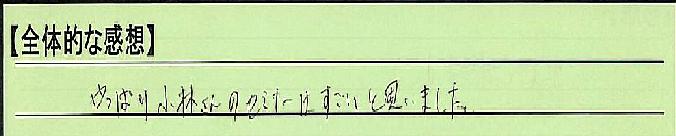 【全体的な感想】
やっぱり小林さんのセミナーはすごいと思いました。